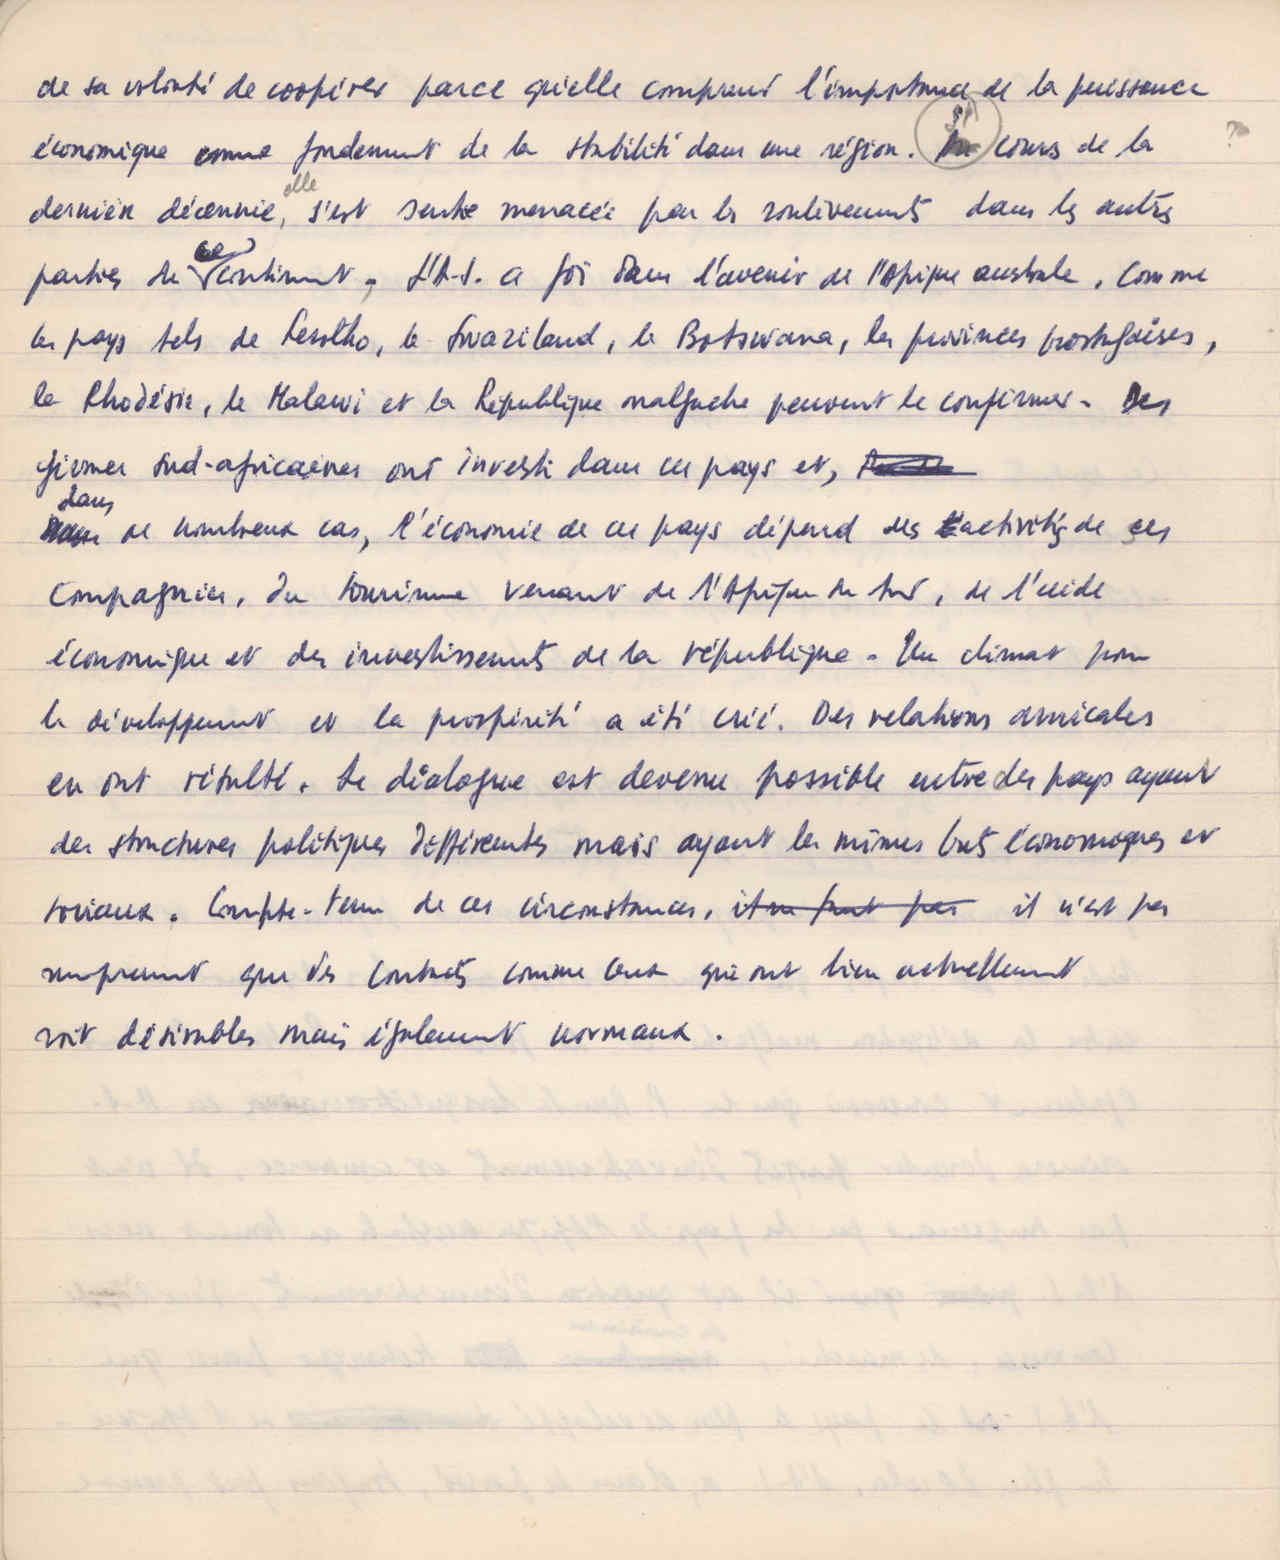 de sa volonté de coopérer parce qu'elle comprend l'importance de la puissance
économique comme fondement de la stabilité dans une région. Au cours de la
dernière décennie, elle s'est sentie menacée par les soulèvements dans les autres
parties de ce continent. L'A-S. a foi dans l'avenir de l'Afrique australe. Comme
les pays tels de Lesotho, le Swaziland, le Botswana, les provinces portugaises,
la Rhodésie, le Malawi et la République malgache peuvent le confirmer. Des
firmes sud-africaines ont investi dans ces pays et,
dans de nombreux cas, l'économie de ces pays dépend des activités de ces
compagnies, du tourisme venant de l'Afrique du Sud, de l'aide
économique et des investissements de la république. Un climat pour
le développement et la prospérité a été créé. Des relations amicales
en ont résulté. Le dialogue est devenu possible entre des pays ayant
des structures politiques différentes mais ayant les mêmes buts économiques et
sociaux. Compte-tenu de ces circonstances, il ne faut pas il n'est pas
surprenant que des contacts comme ceux qui ont lieu actuellement
soit désirables mais également normaux.